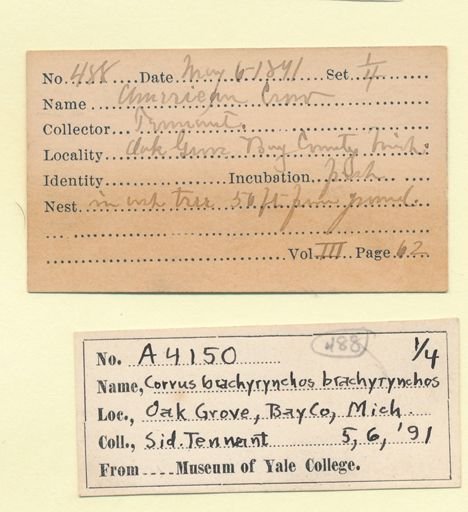 No. 488 Date May 6-1891 Set 1/4
Name American Crow
Collector Tennant.
Locality Oak Grove Bay County Mich.
Identity Incubation fresh
Nest in oak tree 50 ft from ground.
Vol. III Page 62
488
No. A4150 1/4
Name, Corvus brachyrynchos brachyrynchos
Loc., Oak Grove, Bay Co, Mich
Coll., Sid. Tennant 5, 6, '91
From Museum of Yale College.